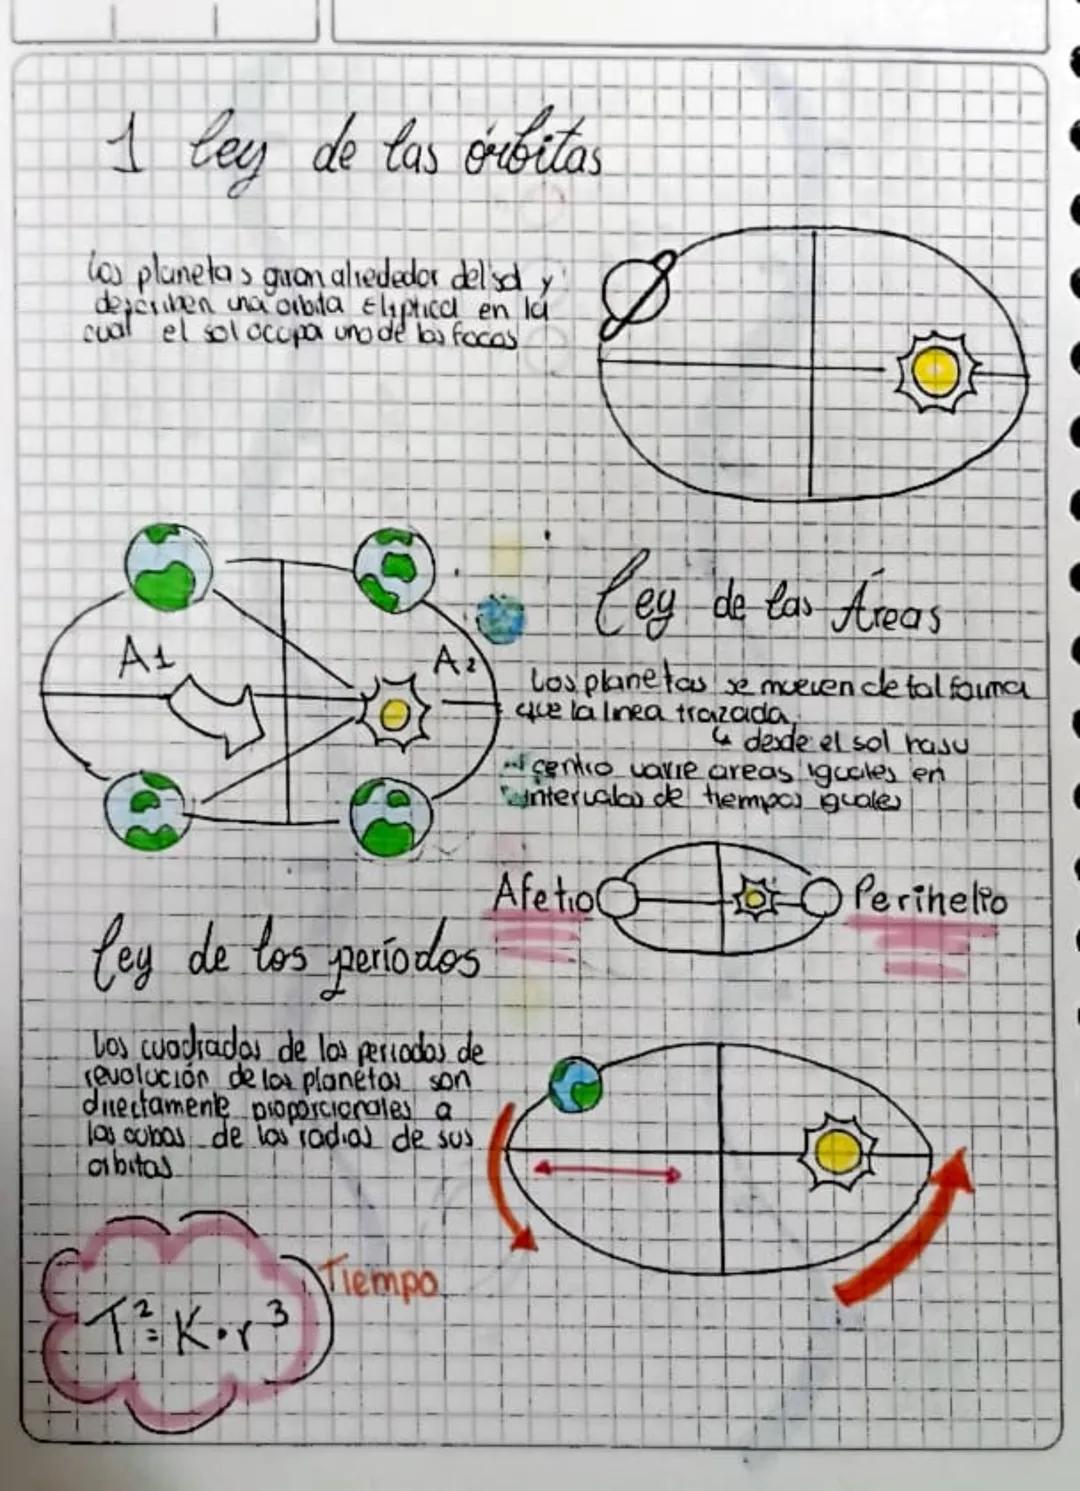 1 ley de las órbitas
Los planetas giran alrededor del sol y
describen una orbita Eliptica en la
cual el sol ocupa uno de los focos
A1
A2
Ley de las Áreas
Los planetas se mueven de tal forma
que la linea trazada
↳ desde el sol hasu
centro varre areas iguales en
intervalos de tiempos iguales
Afetio
Perihelio
Ley de los períodos
Los cuadrados de los periodos de
revolución de los planetas son
directamente proporcionales a
los cubos de los radios de sus
orbitas
Tiempo
T² = K · r³